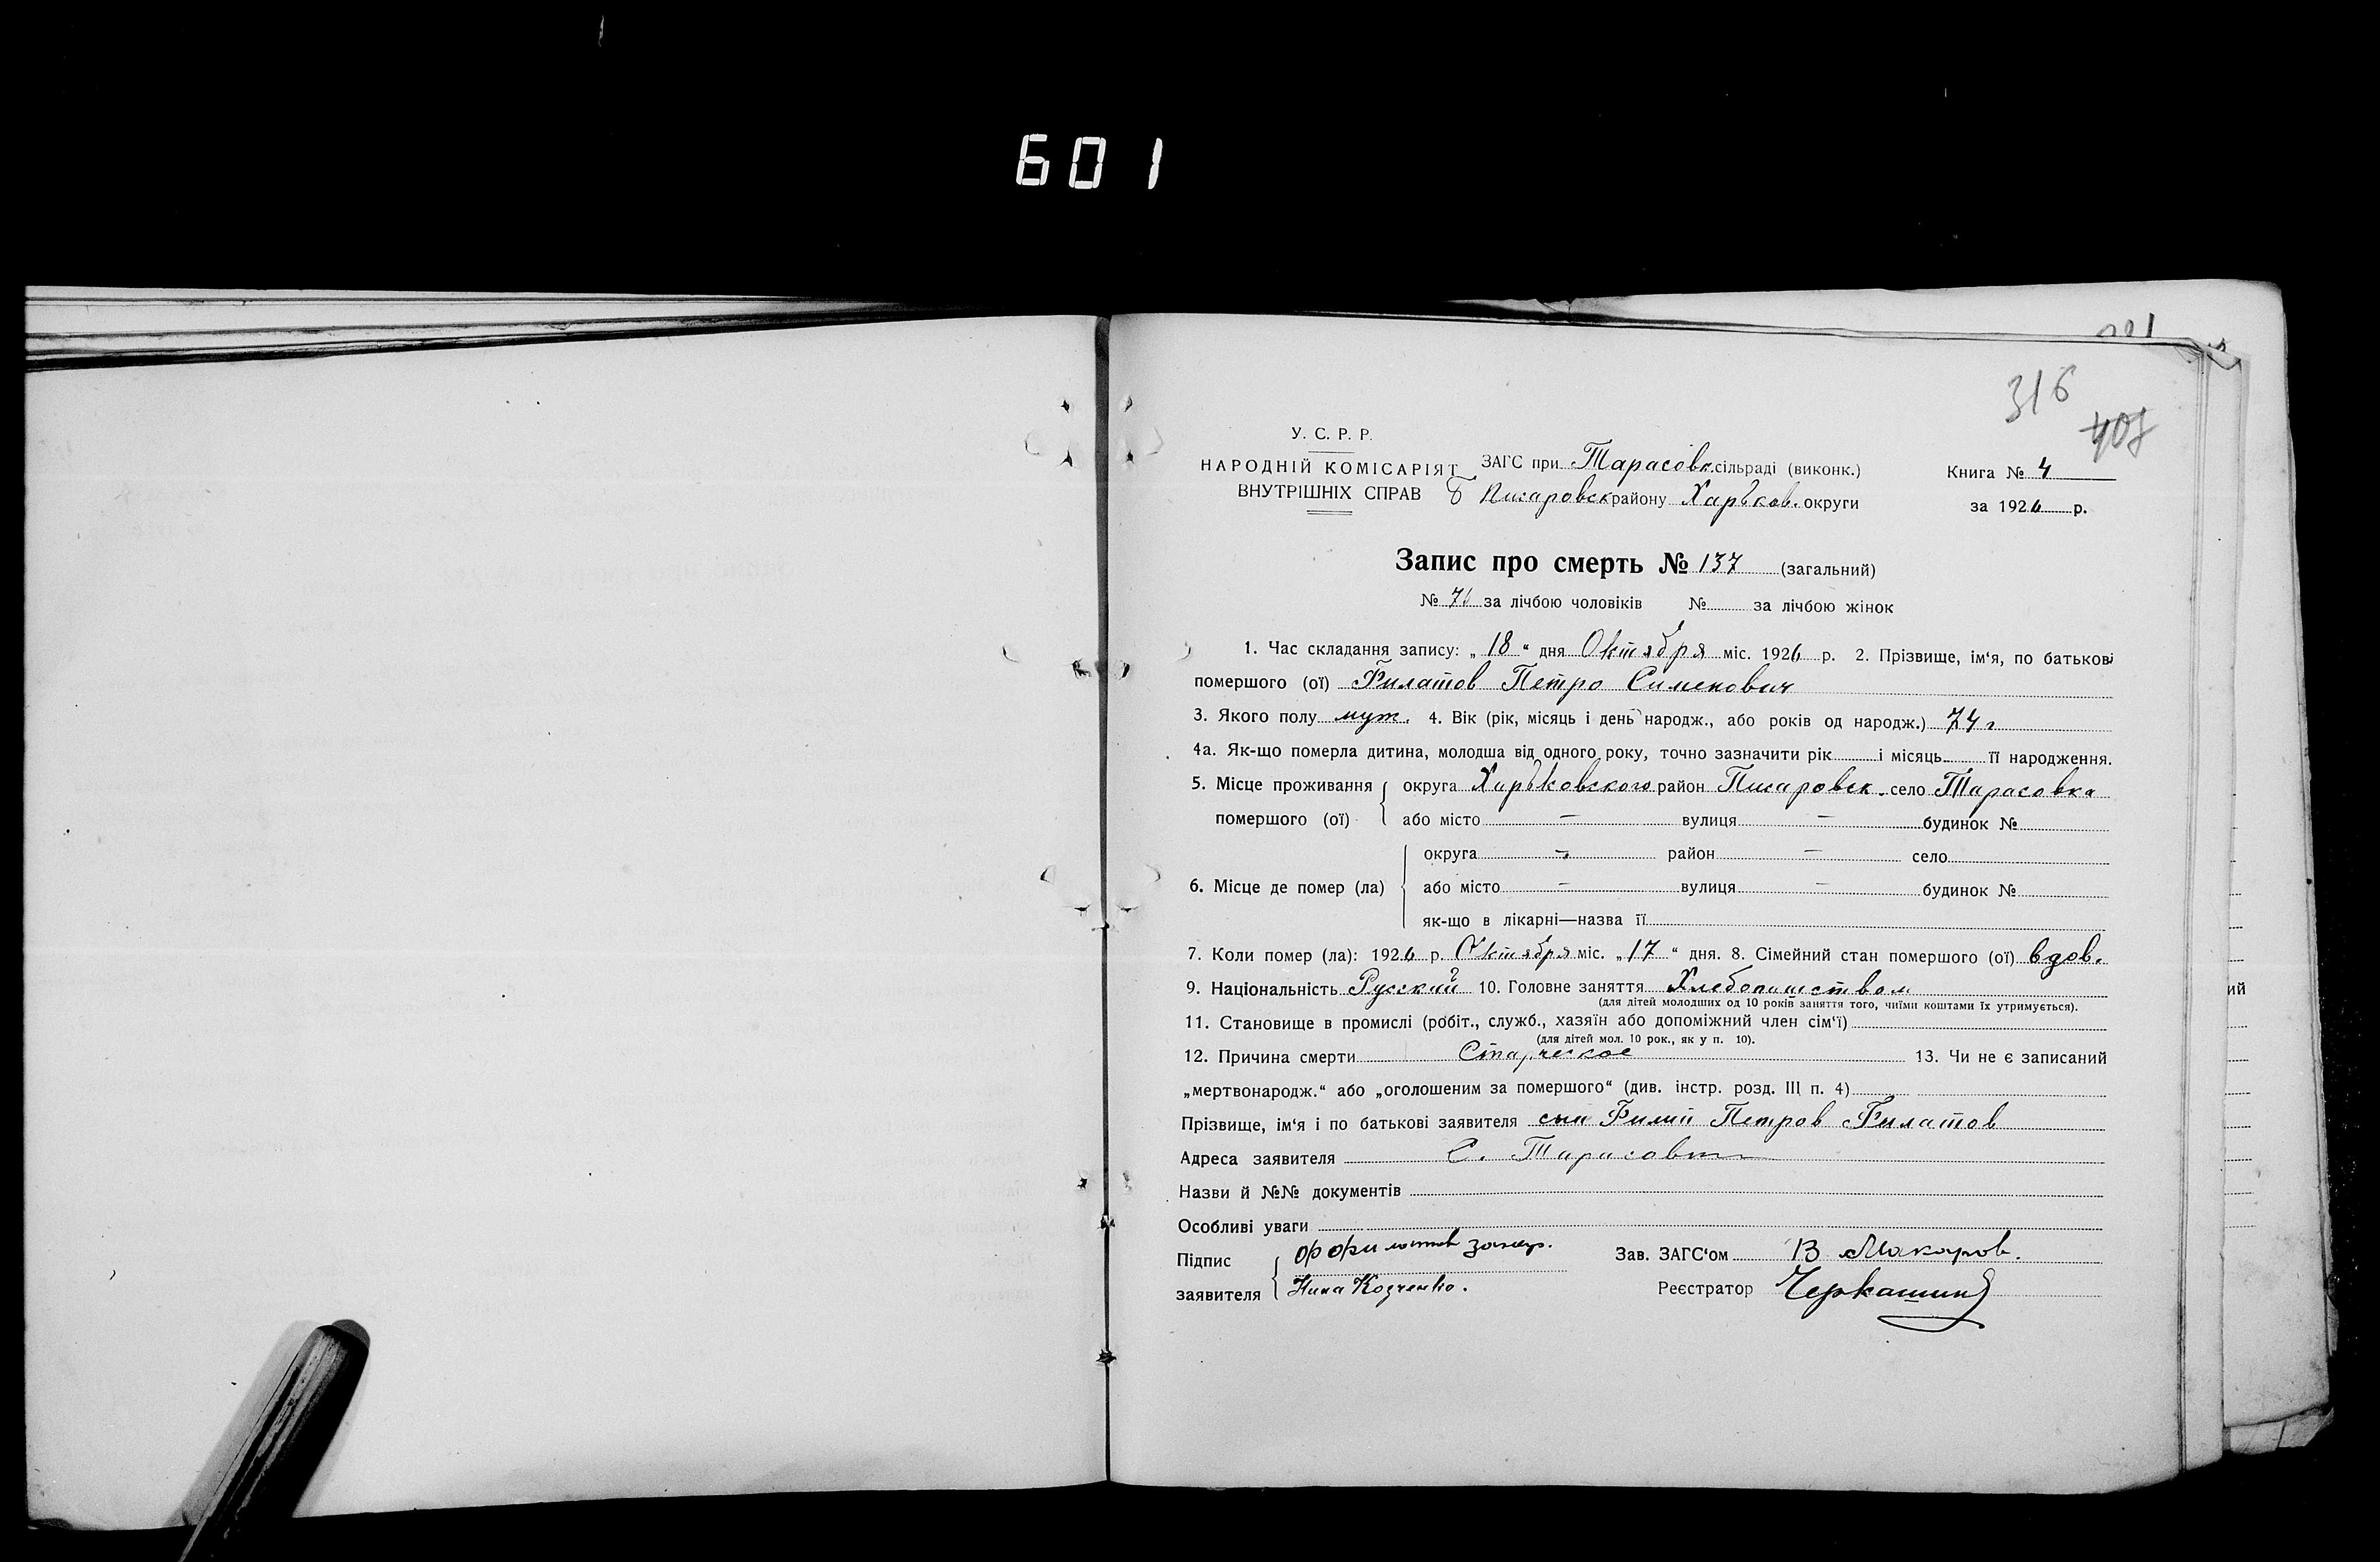 601
316
407
У. С. Р. Р.
НАРОДНІЙ КОМІСАРІЯТ
ВНУТРІШНІХ СПРАВ
ЗАГС при Тарасовк. сільраді (виконк.)
Б Писаровск району Харьков. округи
Книга № 4
за 1926 р.
Запис про смерть № 137 (загальний)
№ за лічбою чоловіків № за лічбою жінок
1. Час складання запису: „ 18 “ дня Октября міс. 1926 р. 2. Прізвище, ім‘я, по батькові
помершого (ої) Филатов Петро Сименович
3. Якого полу муж. 4. Вік (рік, місяць і день народж., або років од народж.) 74 г
4а. Як-що померла дитина, молодша від одного року, точно зазначити рік і місяць її народження.
5. Місце проживання округа Харьковского район Писаровск. село Тарасовка
помершого (ої) або місто — вулиця — будинок №
округа — район — село
6. Місце де помер (ла) або місто — вулиця — будинок №
як-що в лікарні—назва її
7. Коли помер (ла): 1926 р. Октября міс. „ 17 “ дня. 8. Сімейний стан помершого (ої) вдов.
9. Національність Русский 10. Головне заняття Хлебопашеством
(для дітей молодших од 10 років заняття того, чиїми коштами їх утримується).
11. Становище в промислі (робіт., служб., хазяїн або допоміжний член сім‘ї)
(для дітей мол. 10 рок., як у п. 10).
12. Причина смерти Старческое 13. Чи не є записаний
„мертвонародж.“ або „оголошеним за помершого“ (див. інстр. розд. III п. 4)
Прізвище, ім‘я і по батькові заявителя сын Петров Филатов
Адреса заявителя С. Тарасовка
Назви й №№ документів
Особливі уваги
Підпис Зав. ЗАГС‘ом В Макаров.
заявителя Нина Козченко. Реєстратор Черкашин
ий